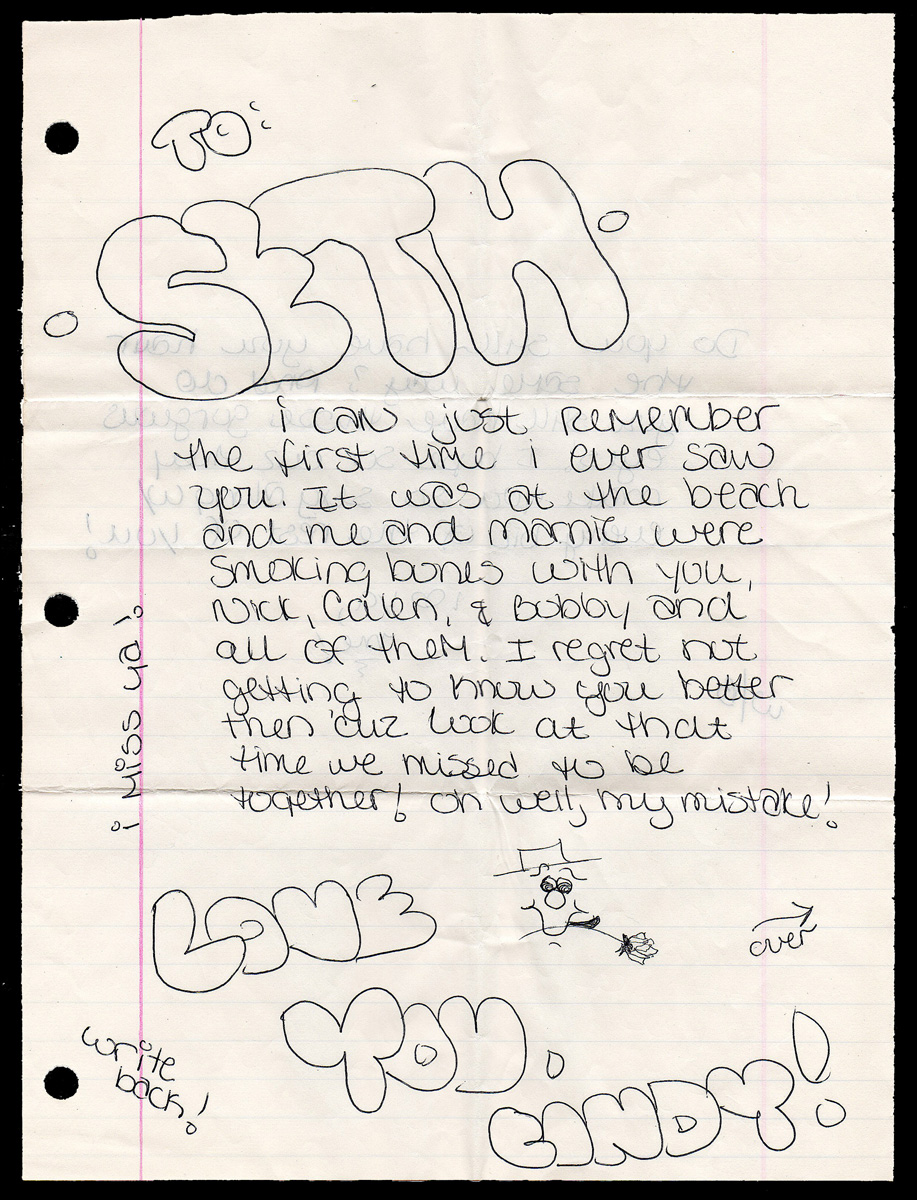 TO:
SETH
i can just remember
the first time i ever saw
you. It was at the beach
and me and marnie were
smoking bones with you,
Nick, Calen, & Bobby and
all of them. I regret not
getting to know you better
then 'cuz look at that
time we missed to be
together! oh well, my mistake!
i Miss ya!
LOVE
over
YOU.
write
back!
CINDY!